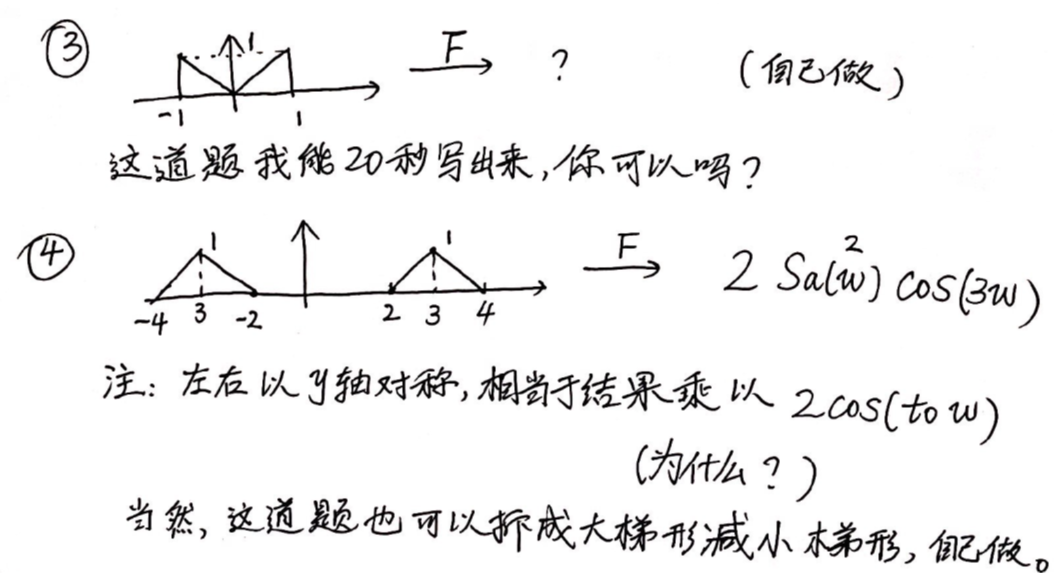 ③ 1 -1 1 F ? (自己做)
这道题我能20秒写出来,你可以吗?
④ 1 1 -4 3 -2 2 3 4 F 2 Sa(w)² cos(3w)
注: 左右以y轴对称,相当于结果乘以 2cos(to w)
(为什么?)
当然, 这道题也可以拆成大梯形减小梯形, 自己做。